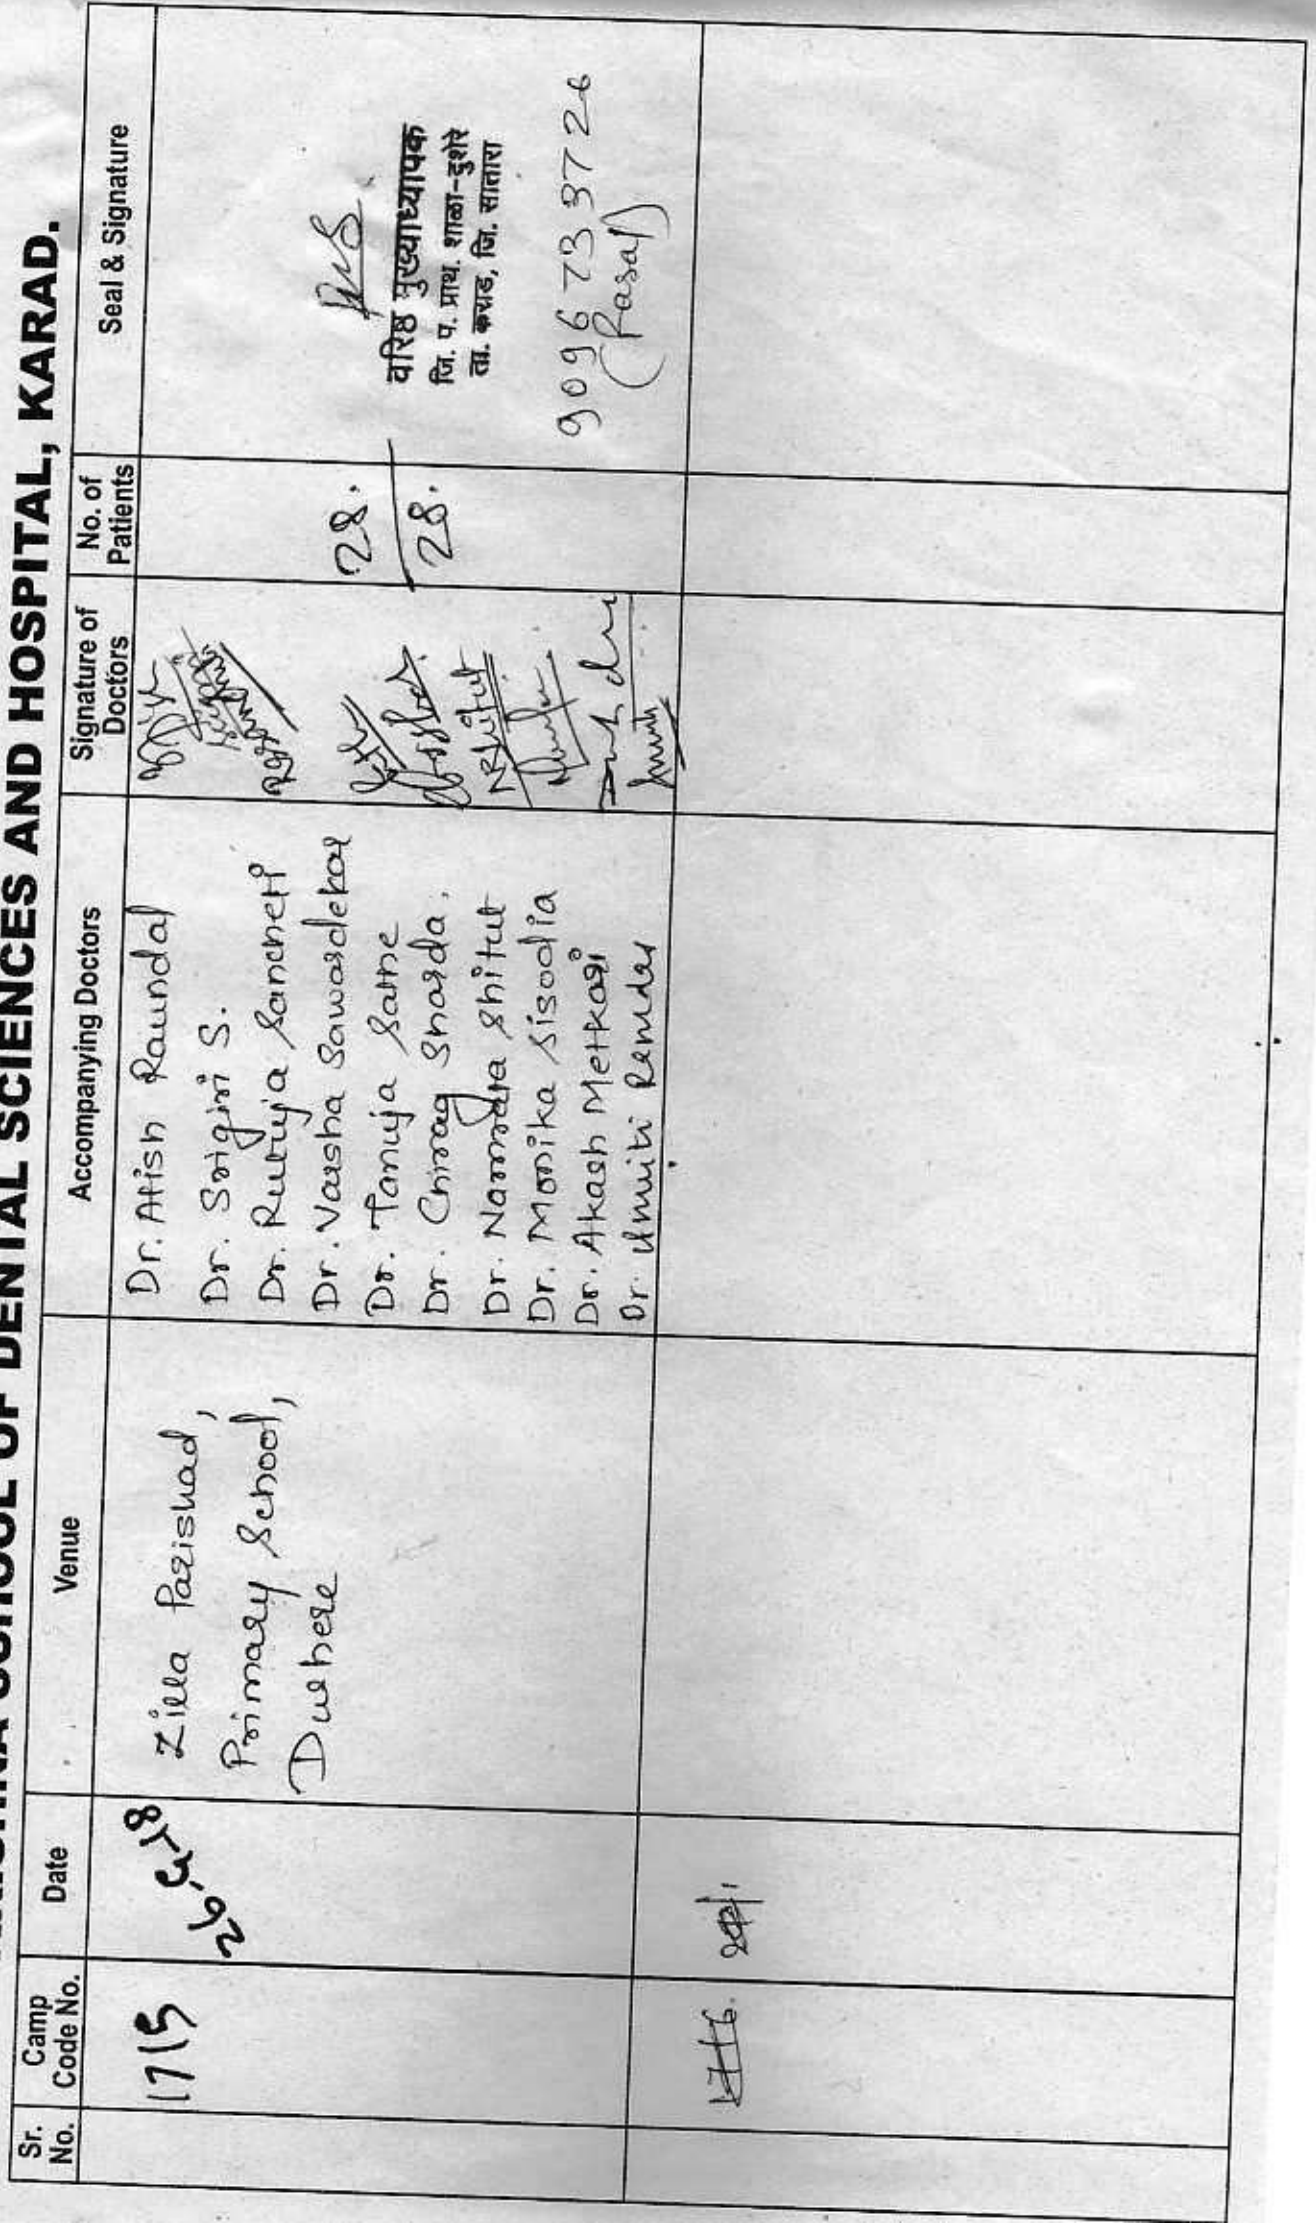 SCHOOL OF DENTAL SCIENCES AND HOSPITAL, KARAD.
Sr. No.
Camp Code No.
Date
Venue
Accompanying Doctors
Signature of Doctors
No. of Patients
Seal & Signature
1715
Zilla Parishad,
Primary School,
Dushere
Dr. Atish Raundal
Dr. Srigiri S.
Dr. Rutuja Sancheti
Dr. Varsha Sawardekar
Dr. Tanuja Satne
Dr. Chirag Sharda.
Dr. Namrata Shitut
Dr. Monika Sisodia
Dr. Akash Metkari
Dr. Smriti
NRShitut
28.
28.
वरिष्ठ मुख्याध्यापक
जि. प. प्राथ. शाळा-दुशेरे
ता. कराड, जि. सातारा
9096733726
(Pasal)